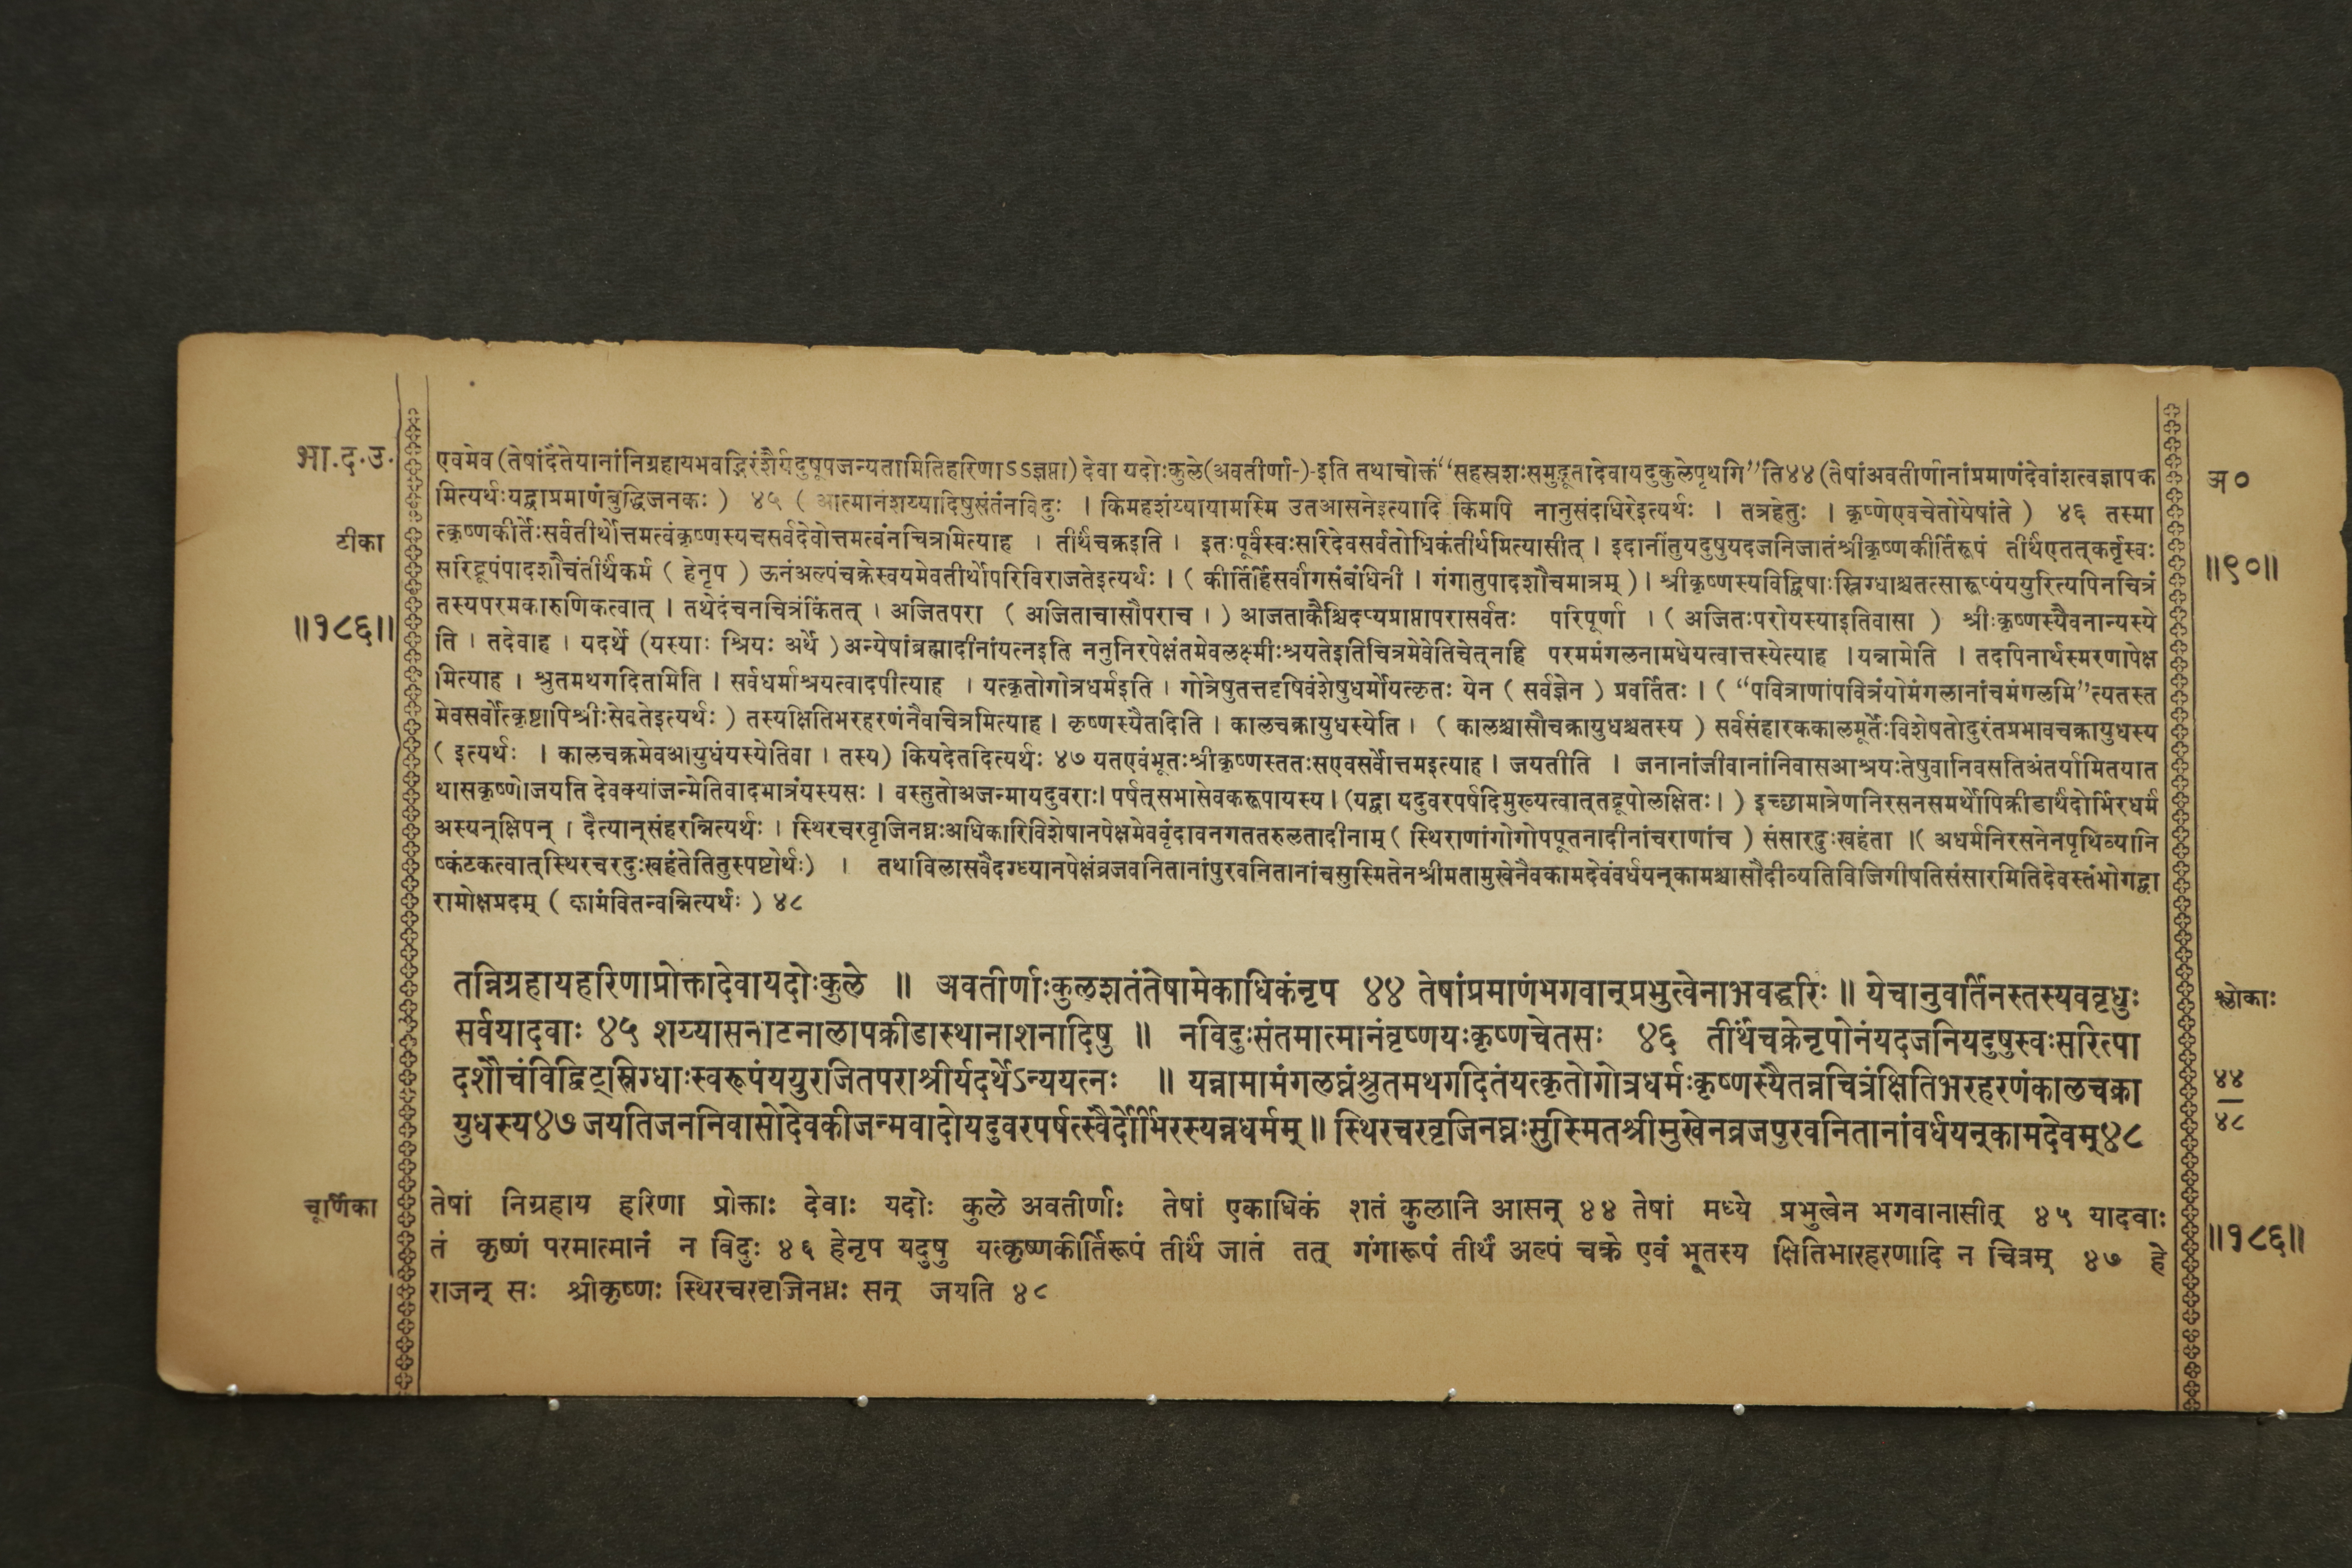 भा.द.उ.
टीका
॥१८६॥
एवमेव(तेषांदैतेयानांनिग्रहायभवद्भिरंशैर्यदुषूपजन्यतामितिहरिणाऽऽज्ञप्ता) देवा यदोःकुले(अवतीर्णा-)-इति तथाचोक्तं“सहस्रशःसमुद्भूतादेवायदुकुलेपृथगि”ति४४(तेषांअवतीर्णानांप्रमाणंदेवांशत्वज्ञापक
मित्यर्थःयद्वाप्रमाणंबुद्धिजनकः) ४५ ( आत्मानंशय्यादिषुसंतंनविदुः । किमहशंय्यायामस्मि उतआसनेइत्यादि किमपि नानुसंदधिरेइत्यर्थः । तत्रहेतुः । कृष्णेएवचेतोयेषांते ) ४६ तस्मा
त्कृष्णकीर्तेःसर्वतीर्थोत्तमत्वंकृष्णस्यचसर्वदेवोत्तमत्वंनचित्रमित्याह । तीर्थंचक्रइति । इतःपूर्वंस्वःसरिदेवसर्वतोधिकंतीर्थमित्यासीत् । इदानींतुयदुषुयदजनिजातंश्रीकृष्णकीर्तिरूपं तीर्थंएतत्कर्तृस्वः
सरिद्रूपंपादशौचंतीर्थंकर्म ( हेनृप ) ऊनंअल्पंचक्रेस्वयमेवतीर्थोपरिविराजतेइत्यर्थः । ( कीर्तिर्हिसर्वांगसंबंधिनी । गंगातुपादशौचमात्रम् ) । श्रीकृष्णस्यविद्विषाःस्निग्धाश्चतत्सारूप्यंययुरित्यपिनचित्रं
तस्यपरमकारुणिकत्वात् । तथेदंचनचित्रंकिंतत् । अजितपरा ( अजिताचासौपराच । ) आजताकैश्चिदप्यप्राप्तापरासर्वतः परिपूर्णा । ( अजितःपरोयस्याइतिवासा ) श्रीःकृष्णस्यैवनान्यस्ये
ति । तदेवाह । यदर्थे (यस्याः श्रियः अर्थे ) अन्येषांब्रह्मादीनांयत्नइति ननुनिरपेक्षंतमेवलक्ष्मीःश्रयतेइतिचित्रमेवेतिचेत्नहि परममंगलनामधेयत्वात्तस्येत्याह । यन्नामेति । तदपिनार्थस्मरणापेक्ष
मित्याह । श्रुतमथगदितामिति । सर्वधर्माश्रयत्वादपीत्याह । यत्कृतोगोत्रधर्मइति । गोत्रेषुतत्तदृषिवंशेषुधर्मोयत्कृतः येन ( सर्वज्ञेन ) प्रवर्तितः । ( “पवित्राणांपवित्रंयोमंगलानांचमंगलमि”त्यतस्त
मेवसर्वोत्कृष्टापिश्रीःसेवतेइत्यर्थः ) तस्यक्षितिभरहरणंनैवाचित्रमित्याह । कृष्णस्यैतदिति । कालचक्रायुधस्येति । ( कालश्चासौचक्रायुधश्चतस्य ) सर्वसंहारककालमूर्तेःविशेषतोदुरंतप्रभावचक्रायुधस्य
( इत्यर्थः । कालचक्रमेवआयुधंयस्येतिवा । तस्य) कियदेतदित्यर्थः ४७ यतएवंभूतःश्रीकृष्णस्ततःसएवसर्वोत्तमइत्याह । जयतीति । जनानांजीवानांनिवासआश्रयःतेषुवानिवसतिअंतर्यामितयात
थासकृष्णोजयति देवक्यांजन्मेतिवादमात्रंयस्यसः । वस्तुतोअजन्मायदुवराः। पर्षत्सभासेवकरूपायस्य । (यद्वा यदुवरपर्षदिमुख्यत्वात्तद्रूपोलक्षितः। ) इच्छामात्रेणनिरसनसमर्थोपिक्रीडार्थंदोर्भिरधर्म
अस्यन्क्षिपन् । दैत्यान्संहरन्नित्यर्थः । स्थिरचरवृजिनघ्नःअधिकारिविशेषानपेक्षमेववृंदावनगततरुलतादीनाम् ( स्थिराणांगोगोपपूतनादीनांचराणांच ) संसारदुःखहंता । ( अधर्मनिरसनेनपृथिव्यानि
ष्कंटकत्वात्स्थिरचरदुःखहंतेतितुस्पष्टोर्थः) । तथाविलासवैदग्ध्यानपेक्षंव्रजवनितानांपुरवनितानांचसुस्मितेनश्रीमतामुखेनैवकामदेवंवर्धयन्कामश्चासौदीव्यतिविजिगीषतिसंसारमितिदेवस्तंभोगद्वा
रामोक्षप्रदम् ( कामंवितन्वन्नित्यर्थः ) ४८
तन्निग्रहायहरिणाप्रोक्तादेवायदोःकुले ॥ अवतीर्णाःकुलशतंतेषामेकाधिकंनृप ४४ तेषांप्रमाणंभगवान्प्रभुत्वेनाभवद्धरिः ॥ येचानुवर्तिनस्तस्यववृधुः
सर्वयादवाः ४५ शय्यासनाटनालापक्रीडास्थानाशनादिषु ॥ नविदुःसंतमात्मानंवृष्णयःकृष्णचेतसः ४६ तीर्थंचक्रेनृपोनंयदजनियदुषुस्वःसरित्पा
दशौचंविद्विट्स्निग्धाःस्वरूपंययुराजितपराश्रीर्यदर्थेऽन्ययत्नः ॥ यन्नामामंगलघ्नंश्रुतमथगदितंयत्कृतोगोत्रधर्मःकृष्णस्यैतन्नचित्रंक्षितिभरहरणंकालचक्रा
युधस्य४७ जयतिजननिवासोदेवकीजन्मवादोयदुवरपर्षत्स्वैर्दोर्भिरस्यन्नधर्मम् ॥ स्थिरचरवृजिनघ्नःसुस्मितश्रीमुखेनव्रजपुरवनितानांवर्धयन्कामदेवम्४८
चूर्णिका
तेषां निग्रहाय हरिणा प्रोक्ताः देवाः यदोः कुले अवतीर्णाः तेषां एकाधिकं शतं कुलानि आसन् ४४ तेषां मध्ये प्रभुत्वेन भगवानासीत् ४५ यादवाः
तं कृष्णं परमात्मानं न विदुः ४६ हेनृप यदुषु यत्कृष्णकीर्तिरूपं तीर्थं जातं तत् गंगारूपं तीर्थं अल्पं चक्रे एवं भूतस्य क्षितिभारहरणादि न चित्रम् ४७ हे
राजन् सः श्रीकृष्णः स्थिरचरवृजिनघ्नः सन् जयति ४८
अ०
॥९०॥
श्लोकाः
४४
४८
॥१८६॥